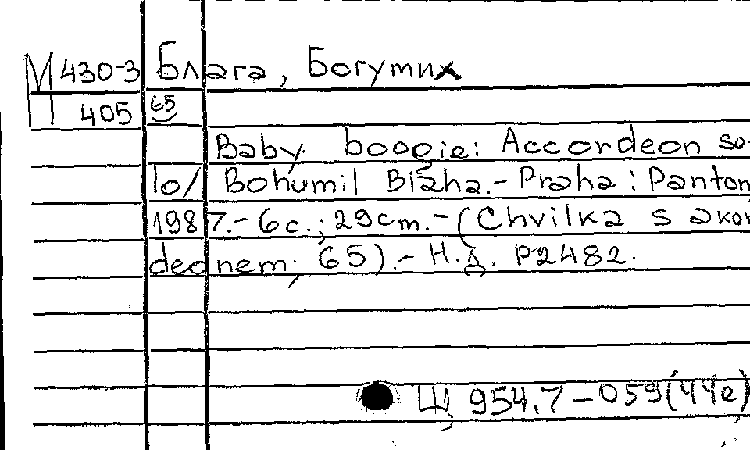 М 430-3 Блага, Богумил
405 65
Baby boogie: Accordeon so-
lo/ Bohumil Blaha.- Praha: Panton
1987.- 6с.; 29cm.- (Chvilka s akor
deonem; 65).- Н.Д. P2482.
Щ 954.7-059(44е)